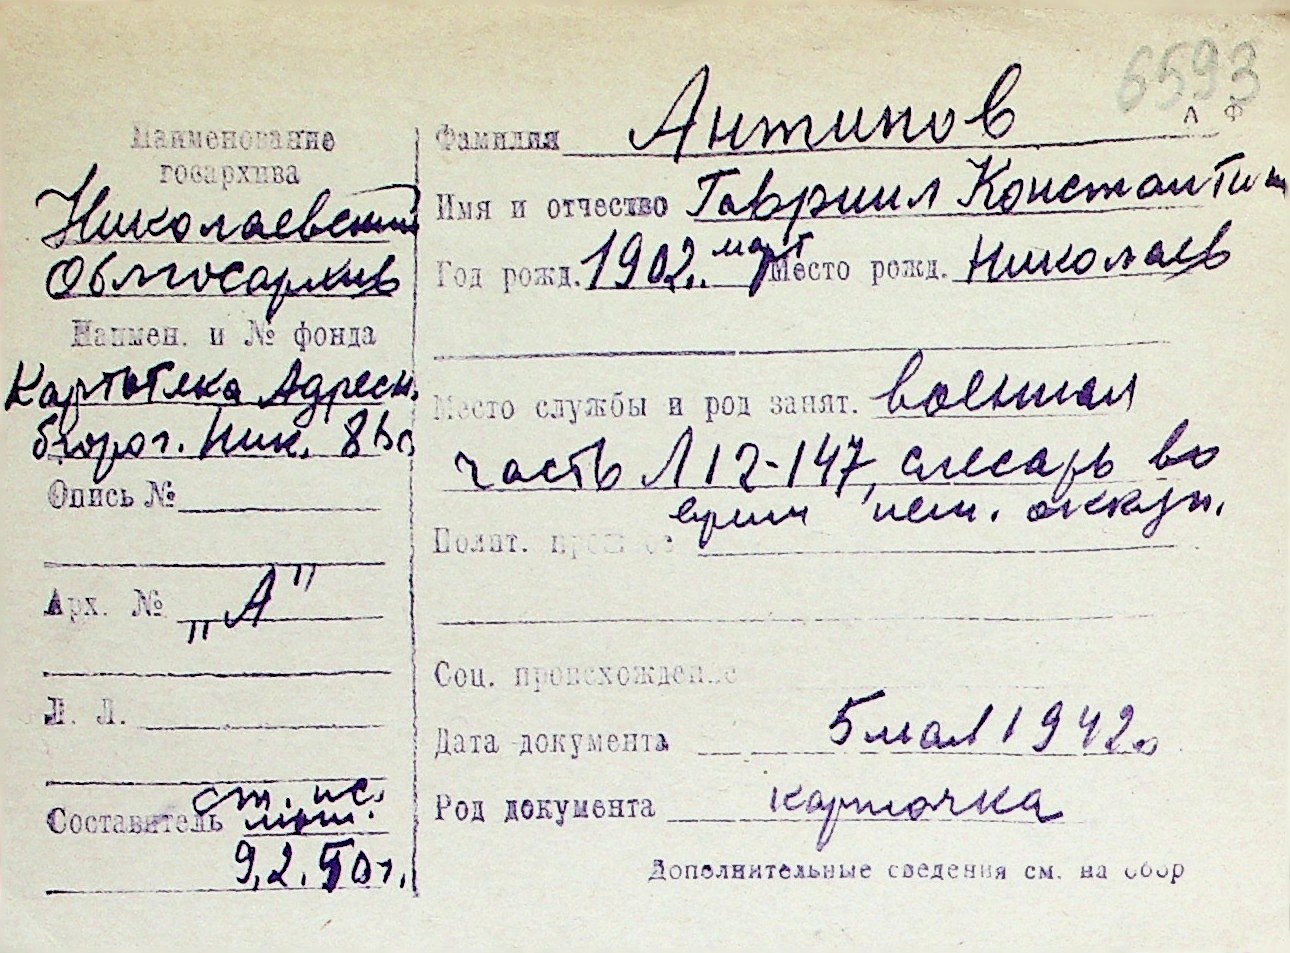 6593
А Ф
Наименование
госархива
Николаевский
Облгосархив
Наимен. и № фонда
Картотека Адресн.
Опись №
Арх. № "А"
Л. Л.
Составитель ст. ис.
9.2.50г.
Фамилия Антипов
Имя и отчество Гавриил Константин
Год рожд. 1902. март Место рожд. Николаев
Место службы и род занят. военная
часть Л12-147, слесарь во
врем нем. оккуп.
Полит. прошлое
Соц. происхождение
Дата документа 5 мая 1942г.
Род документа карточка
Дополнительные сведения см. на обор